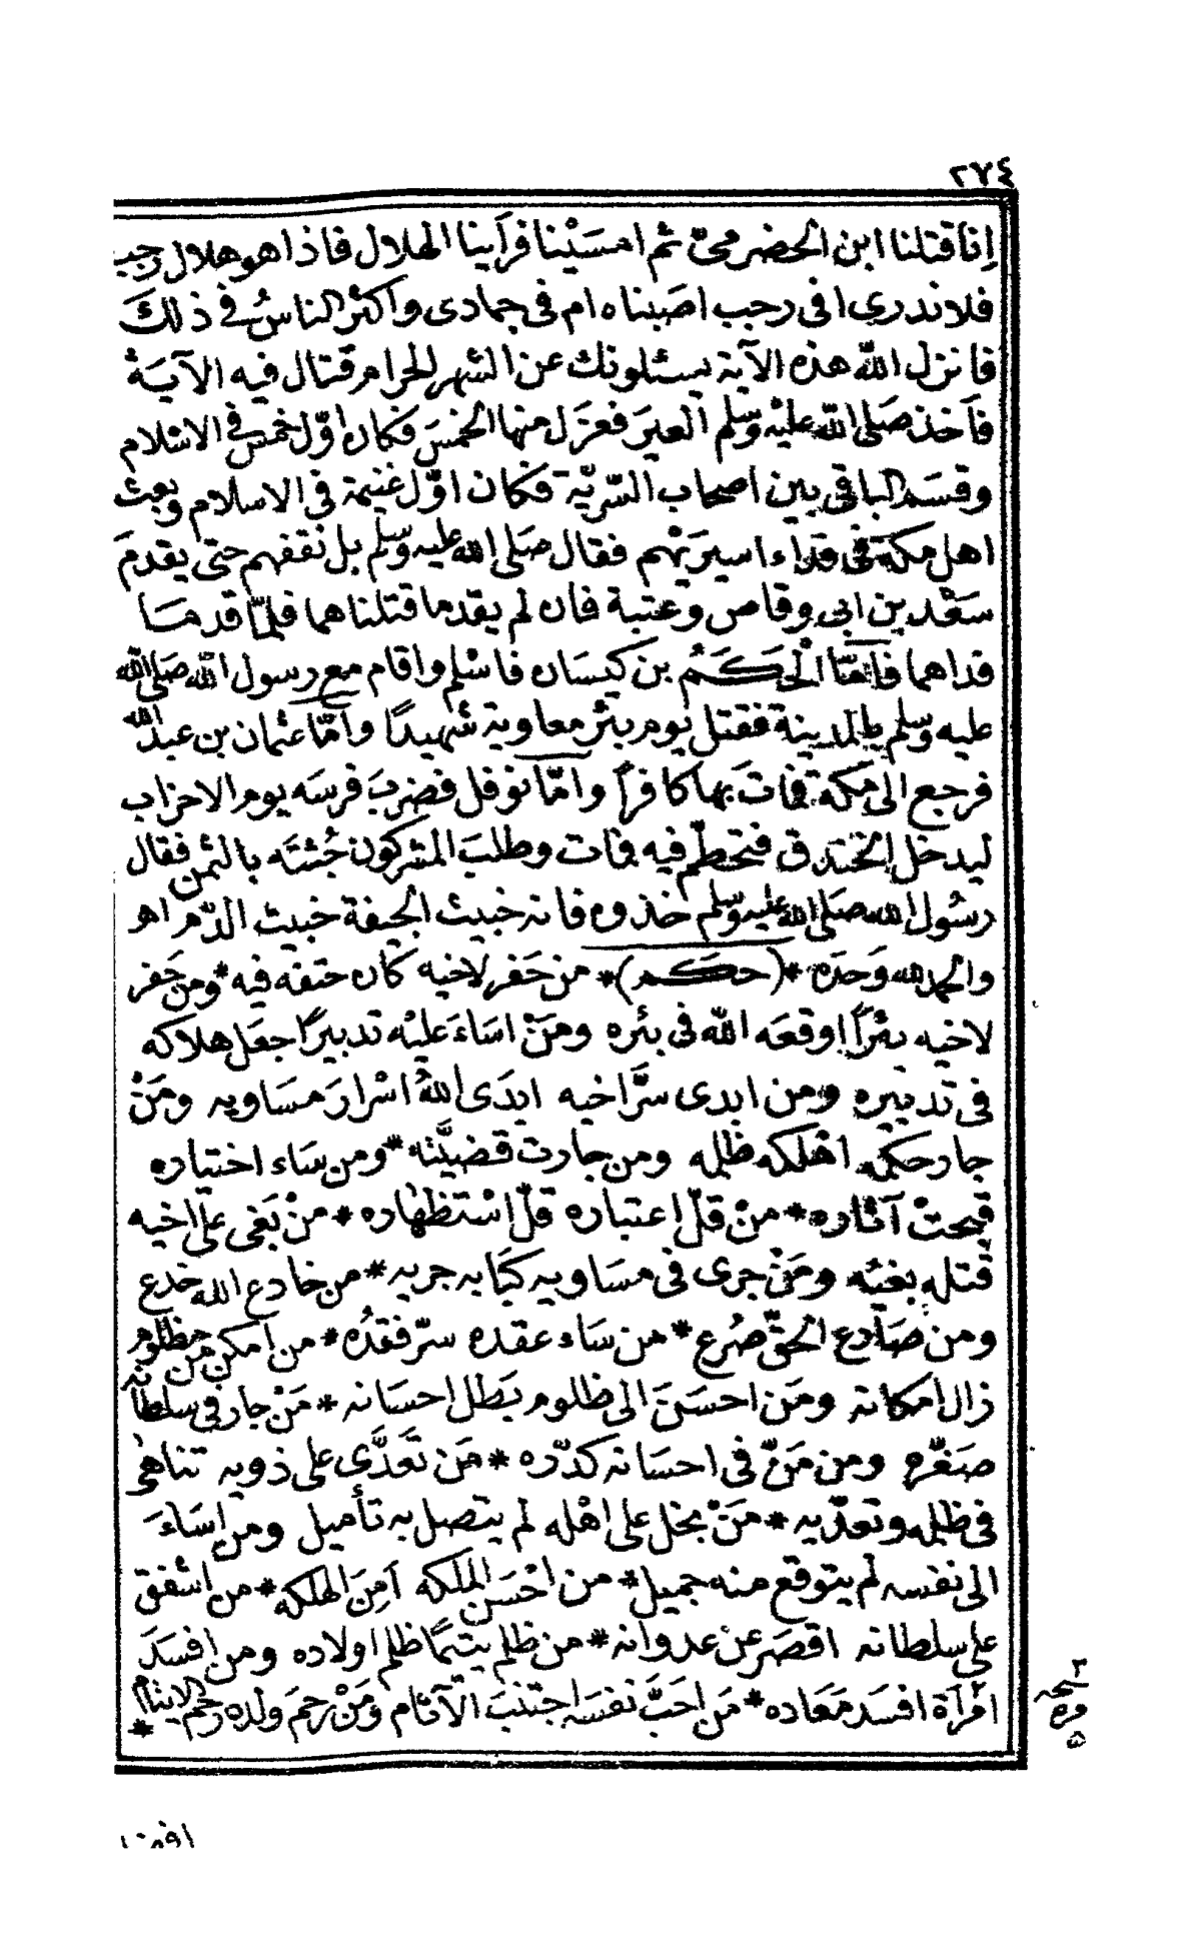 ٢٧٤
إنا قتلنا ابن الحضرمىّ ثم امسَيْنا فرأينا الهلال فاذا هو هلال رجب
فلا ندري افى رجب اصَبناه ام فى جمادى واكثر الناسُ فى ذلك
فانزل اللّه هذه الآية يسئلونك عن الشهر الحرام قتال فيه الآيةَ
فاَخذ صَلى اللّه عليْه وسَلم العيرَ فعزَل منها الخمسَ فكان اوّل خمس فى الاسْلام
وقسَم الباقى بين اصحاب السّريّة فكان اوّل غنيمة فى الاسلام وبعث
اهل مكة فى فداء اسيرَيْهم فقال صَلى اللّه عليه وسَلم بل نقفهم حتى يقدمَ
سَعْد بن ابى وقاص وعتبة فان لم يقدما قتلناهما فلمّا قدمَا
فداهما فأمّا الْحَكَمُ بن كيسَان فاسْلم واقام مع رسول اللّه صَلى اللّه
عليه وسَلم بالمدينة فقتل يوم بئر معاوية شهيدًا وأمّا عثمان بن عبد اللّه
فرجع الى مَكة فماتَ بها كافراً وامّا نوفل فضربَ فرسَه يوم الاحزاب
ليدخل الخندق فتحطم فيه فمات وطلبَ المشركون جُثتَه بالثمن فقال
رسُول اللّه صَلى اللّه عليه وسَلم خذوه فانه خبيث الجيفة خبيث الدّم اهـ
والحمد للّه وَحدَه * (حكَم) * من حَفر لاخيه كان حتفه فيه * ومن حَفر
لاخيه بئراً اوقعَه اللّه فى بئره ومَنْ اسَاءَ عليْه تدبيرًا جعَل هلاكه
فى تدبيره ومن ابدى سرَّ اخيه ابدَى اللّهُ اسْرارَ مسَاويه ومَنْ
جار حكمه اهْلكه ظلمه ومن جارت قضيَّته * ومن سَاء اختياره
قبحتْ آثاره * منْ قلّ اعتباره قلّ اسْتظهاره * منْ بَغى على اخيه
قتله بغيُه ومَنْ جرى فى مسَاويه كبَا به جريه * من خادع اللّه خدع
ومن صَارع الحقّ صُرع * من سَاء عقده سرّ فقدُه * من امكن من مظلوم
زال امكانه ومَن احسَنَ الى ظلوم بَطل احسَانه * مَنْ جار فى سلطانه
صَغّره ومن مَنّ فى احسَانه كدّره * مَن تعَدَّى على ذويه تناهى
فى ظلمه وتعدّيه * مَنْ بخل على اهْله لم يتصل به تأميل ومن اسَاءَ
الى نفسه لم يتوقع منه جميل * من احْسَن الملَكه اَمِنَ الهلكه * من اشفق
على سلطانه اقصَر عنْ عدوانه * من ظلم يتيمًا ظلم اولاده ومن افسَدَ
امْرأة افسَد مَعَاده * مَن احَبَّ نفسَه اجتنبَ الآثام ومَنْ رحمَ ولده رحم الايتام *